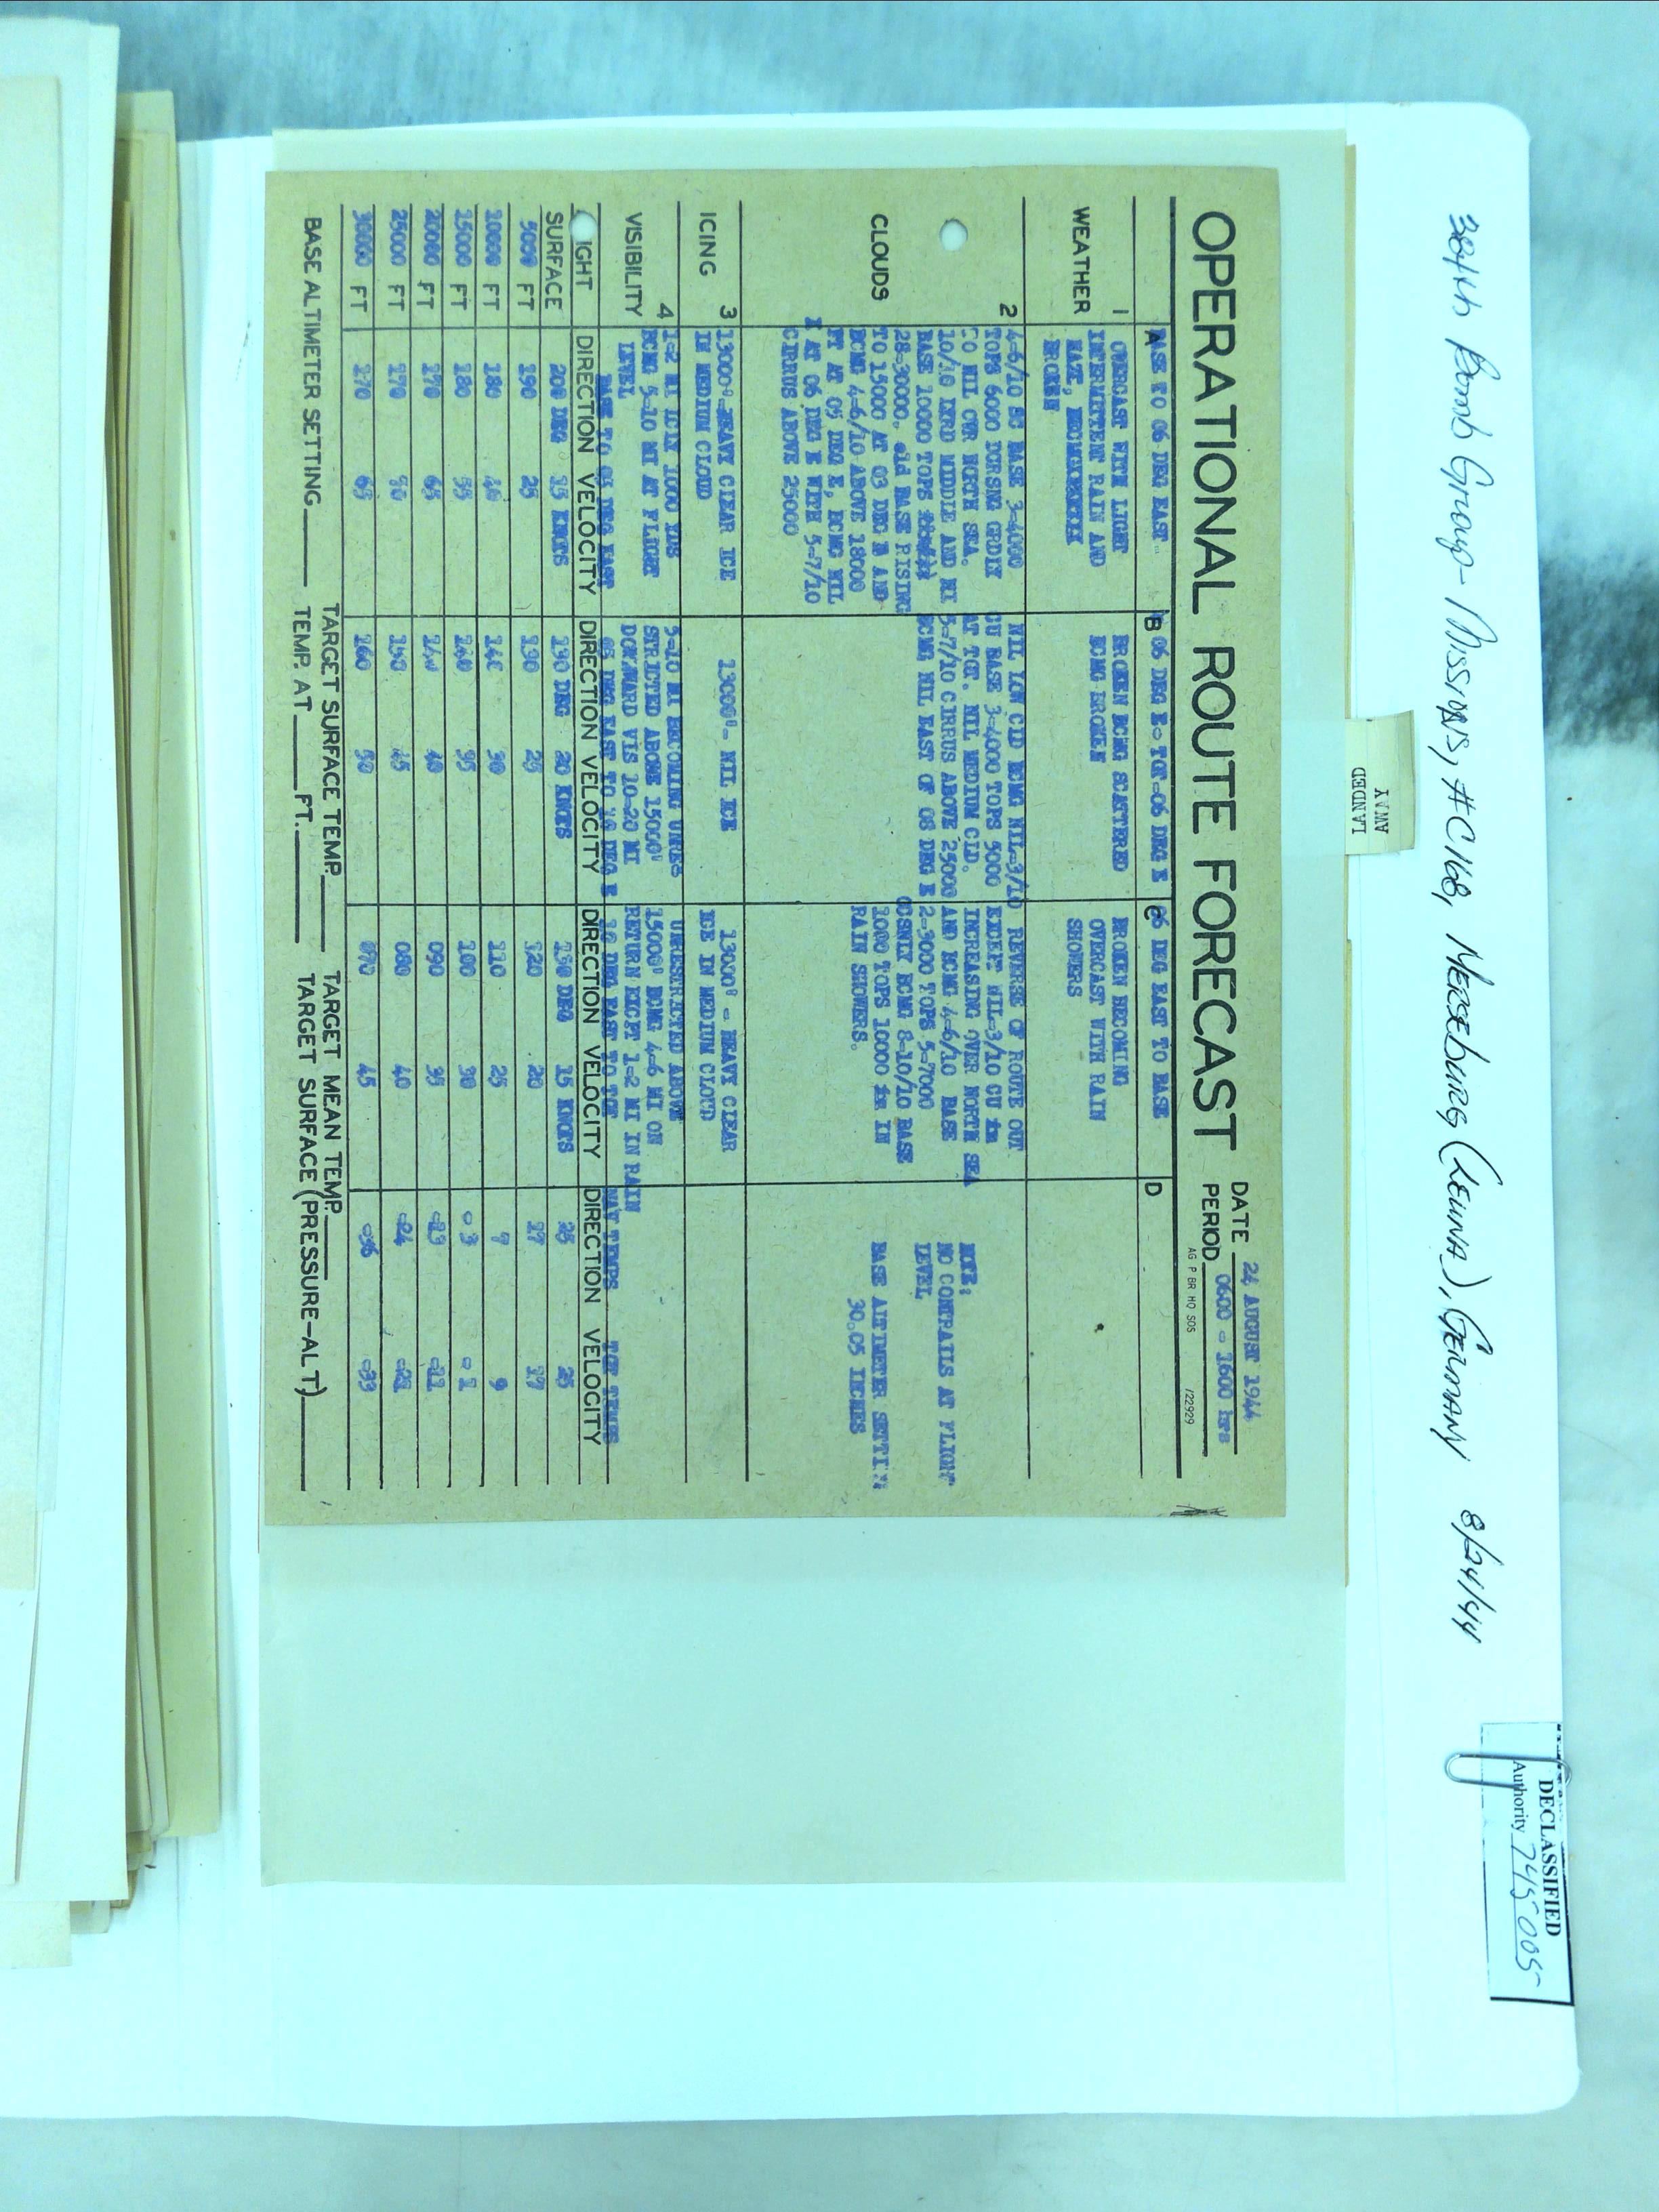 384th Bomb Group - Missions, #C168, Merseburg (Leuna), Germany 8/24/44
DECLASSIFIED
Authority 745005
LANDED
AWAY
OPERATIONAL ROUTE FORECAST
DATE 24 AUGUST 1944
PERIOD 0600 - 1600 hrs
AG P BR HQ SOS 122929
A BASE TO 06 DEG EAST
B 06 DEG E-TGT-06 DEG E
C 06 DEG EAST TO BASE
D
1
WEATHER
OVERCAST WITH LIGHT
INTERMITTENT RAIN AND
HAZE,
BROKEN
BROKEN BCMG SCATTERED
BCMG BROKEN
BROKEN BECOMING
OVERCAST WITH RAIN
SHOWERS
2
CLOUDS
4-6/10 SC BASE 3-4000
TOPS 6000 DURSNG CRDIX
TO NIL OVR NORTH SEA.
10/10 LYRD MIDDLE AND HI
BASE 10000 TOPS
28-30000, cld BASE RISING
TO 15000 AT 03 DEG E AND
BCMG 4-6/10 ABOVE 18000
FT AT 05 DEG E, BCMG NIL
X AT 06 DEG E WITH 5-7/10
CIRRUS ABOVE 25000
NIL LOW CLD BCMG NIL-3/10
CU BASE 3-4000 TOPS 5000
AT TGT. NIL MEDIUM CLD.
5-7/10 CIRRUS ABOVE 25000
BCMG NIL EAST OF 08 DEG E
REVERSE OF ROUTE OUT
EXCEPT NIL-3/10 CU in
INCREASING OVER NORTH SEA
AND BCMG 4-6/10 BASE
2-3000 TOPS 5-7000
OCSNLY BCMG 8-10/10 BASE
1000 TOPS 10000 in IN
RAIN SHOWERS.
NOTE:
NO CONTRAILS AT FLIGHT
LEVEL
BASE ALTIMETER SETTING
30.05 INCHES
3
ICING
13000'-HEAVY CLEAR ICE
IN MEDIUM CLOUD
13000'- NIL ICE
13000' - HEAVY CLEAR
ICE IN MEDIUM CLOUD
4
VISIBILITY
1-2 MI ICIN 1000 YDS
BCMG 5-10 MI AT FLIGHT
LEVEL
5-10 MI BECOMING UNRE-
STRICTED ABOVE 15000'
DOWNWARD VIS 10-20 MI
UNRESTRICTED ABOVE
15000' BCMG 4-6 MI ON
RETURN EXCPT 1-2 MI IN RAIN
BASE TO 04 DEG EAST
05 DEG EAST TO 10 DEG E
10 DEG EAST TO TGT
NAV TEMPS TGT TEMPS
IGHT DIRECTION VELOCITY DIRECTION VELOCITY DIRECTION VELOCITY DIRECTION VELOCITY
SURFACE 200 DEG 15 KNOTS 130 DEG 20 KNOTS 130 DEG 15 KNOTS 25 25
5000 FT 190 25 130 25 120 20 17 17
10000 FT 180 40 140 30 110 25 7 9
15000 FT 180 55 140 35 100 30 - 3 - 1
20000 FT 170 65 140 40 090 35 -13 -11
25000 FT 170 70 150 45 080 40 -24 -21
30000 FT 170 65 160 50 070 45 -36 -33
TARGET SURFACE TEMP. TARGET MEAN TEMP.
BASE ALTIMETER SETTING TEMP. AT FT. TARGET SURFACE (PRESSURE-ALT)